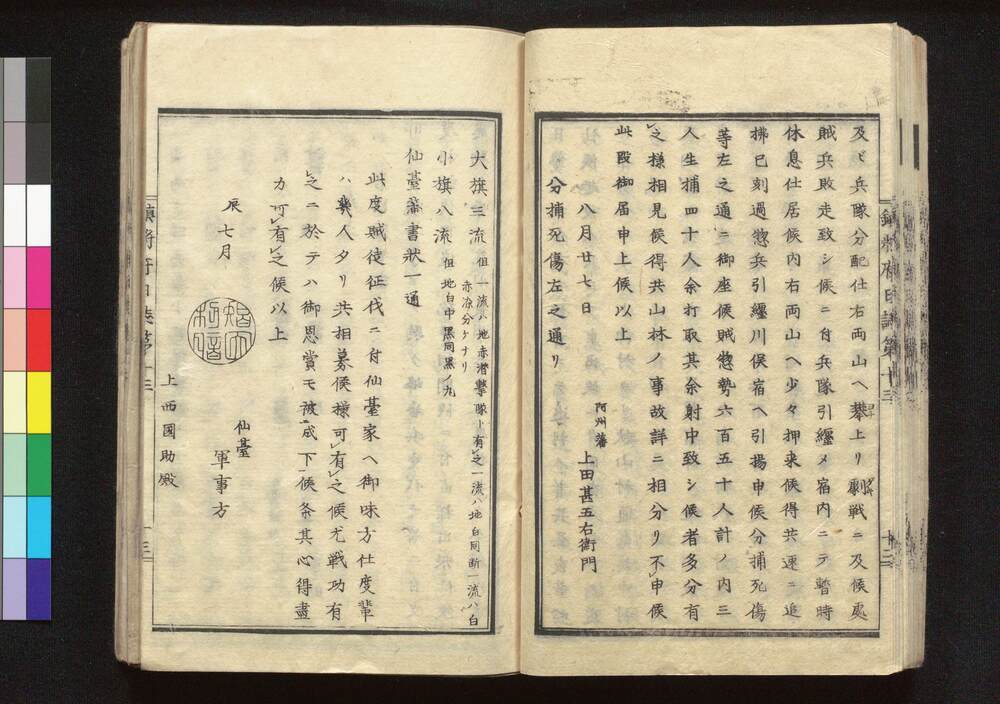 及ビ兵隊分配仕右両山ヘ攀上リ劇戦ニ及候處
賊兵敗走致シ候ニ付兵隊引纏メ宿内ニテ暫時
休息仕居候内右両山ヘ少々押来候得共速ニ追
拂巳刻過惣兵引纏川俣宿ヘ引揚申候分捕死傷
等左之通ニ御座候賊惣勢六百五十人計ノ内三
人生捕四十人余打取其余射中致シ候者多分有
之様相見候得共山林ノ事故詳ニ相分リ不申候
此段御届申上候以上
八月廿七日
阿州藩 上田甚五右衛門
分捕死傷左之通リ
大旗三流 但一流ハ地赤漕撃隊ト有之一流ハ地白同断一流ハ白
赤涼分ケナリ
小旗八流 但地白中黒同黒ノ丸
仙臺藩書状一通
此度賊徒征伐ニ付仙臺家ヘ御味方仕度輩
ハ幾人タリ共相募候様可有之候尤戦功有
之ニ於テハ御恩賞モ被成下候条其心得盡
力可有之候以上
辰七月
仙臺
軍事方
上西國助殿
鎮将府日誌第十三
十三